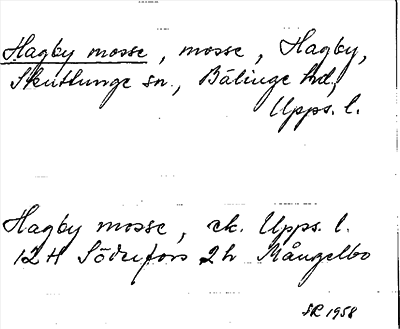 Hagby mosse, mosse, Hagby,
Skuttunge sn., Bälinge hd,
Upps. l.
Hagby mosse, ek. Upps. l.
12 H Söderfors 2 h Mångelbo
SR 1958